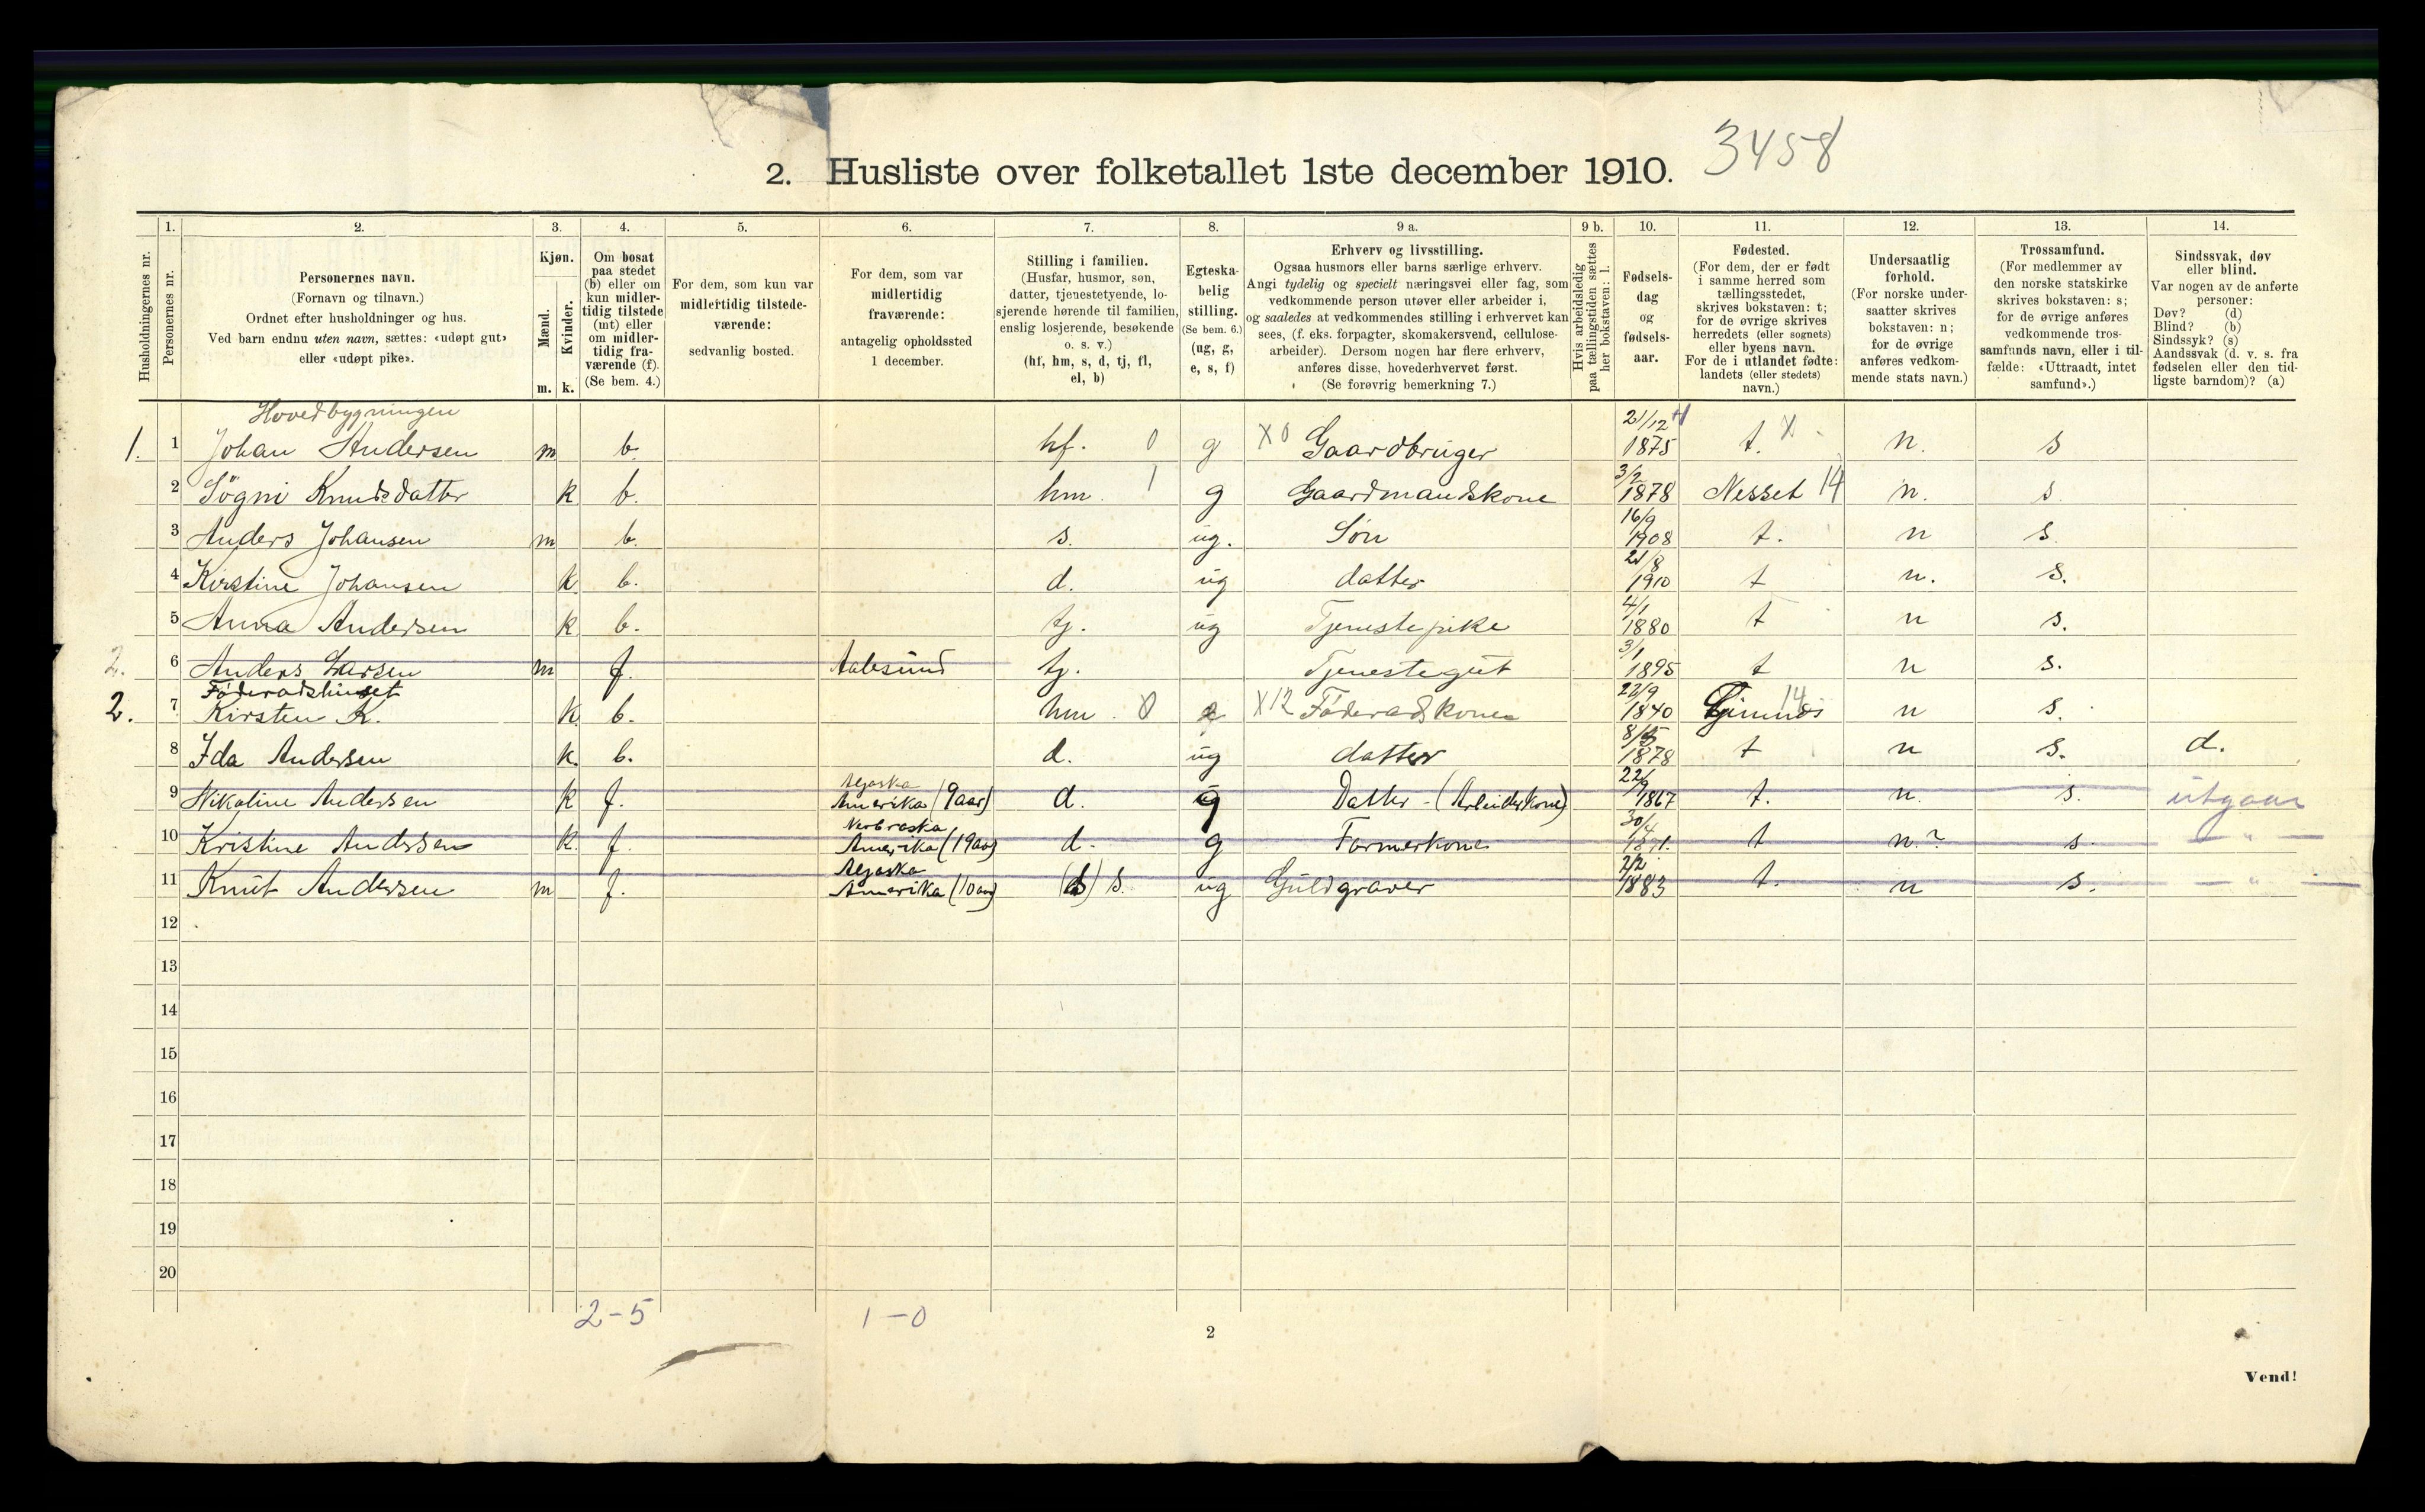 3458
2. Husliste over folketallet 1ste december 1910.
Husholdningernes nr.
1. Personernes nr.
2. Personernes navn.
(Fornavn og tilnavn.)
Ordnet efter husholdninger og hus.
Ved barn endnu uten navn, sættes: «udøpt gut»
eller «udøpt pike».
3. Kjøn.
Mænd. m.
Kvinder. k.
4. Om bosat
paa stedet
(b) eller om
kun midler-
tidig tilstede
(mt) eller
om midler-
tidig fra-
værende (f).
(Se bem. 4.)
5. For dem, som kun var
midlertidig tilstede-
værende:
sedvanlig bosted.
6. For dem, som var
midlertidig
fraværende:
antagelig opholdssted
1 december.
7. Stilling i familien.
(Husfar, husmor, søn,
datter, tjenestetyende, lo-
sjerende hørende til familien,
enslig losjerende, besøkende
o. s. v.)
(hf, hm, s, d, tj, fl,
el, b)
8. Egteska-
belig
stilling.
(Se bem. 6.)
(ug, g,
e, s, f)
9 a. Erhverv og livsstilling.
Ogsaa husmors eller barns særlige erhverv.
Angi tydelig og specielt næringsvei eller fag, som
vedkommende person utøver eller arbeider i,
og saaledes at vedkommendes stilling i erhvervet kan
sees, (f. eks. forpagter, skomakersvend, cellulose-
arbeider). Dersom nogen har flere erhverv,
anføres disse, hovederhvervet først.
(Se forøvrig bemerkning 7.)
9 b. Hvis arbeidsledig
paa tællingstiden sættes
her bokstaven: l.
10. Fødsels-
dag
og
fødsels-
aar.
11. Fødested.
(For dem, der er født
i samme herred som
tællingsstedet,
skrives bokstaven: t;
for de øvrige skrives
herredets (eller sognets)
eller byens navn.
For de i utlandet fødte:
landets (eller stedets)
navn.)
12. Undersaatlig
forhold.
(For norske under-
saatter skrives
bokstaven: n;
for de øvrige
anføres vedkom-
mende stats navn.)
13. Trossamfund.
(For medlemmer av
den norske statskirke
skrives bokstaven: s;
for de øvrige anføres
vedkommende tros-
samfunds navn, eller i til-
fælde: «Uttraadt, intet
samfund».)
14. Sindssvak, døv
eller blind.
Var nogen av de anførte
personer:
Døv? (d)
Blind? (b)
Sindssyk? (s)
Aandssvak (d. v. s. fra
fødselen eller den tid-
ligste barndom)? (a)
Hovedbygningen
1. 1 Johan Andersen m b. hf. 0 g X0 Gaardbruger 21/12 1875 t. X n. s
2 Sögni Knudsdatter k b. hm. 1 g Gaardmandskone 3/2 1878 Nesset 14 n. s
3 Anders Johansen m b. s. ug. Søn 16/9 1908 t. n s.
4 Kirstine Johansen k b. d. ug datter 21/8 1910 t n. s.
5 Anna Andersen k b. tj. ug Tjenestepike 4/1 1880 t n s.
2. 6 Anders Larsen m f. Aalesund tj. Tjenestegut 3/1 1895 t n s.
Föderadshuset
2. 7 Kirsten K. k b. hm. 0 X12 Föderadskone 22/9 1840 14 n s.
8 Ida Andersen k. b. d. ug datter 1878 t n s. d.
9 Nikoline Andersen k f. Aljaska Amerika (9 aar) d. g Datter - (Arbeiderkone) 22/9 1867 t. n. s. utgaar
10 Kristine Andersen k. f. Nerbraska Amerika (19 aar) d. g Farmerkone 30/4 t n.? s. — " —
11 Knut Andersen m f. Aljaska Amerika (10 aar) s. ug Guldgraver 2/2 1883 t. n s. — " —
12
13
14
15
16
17
18
19
20
2-5 1-0
2
Vend!